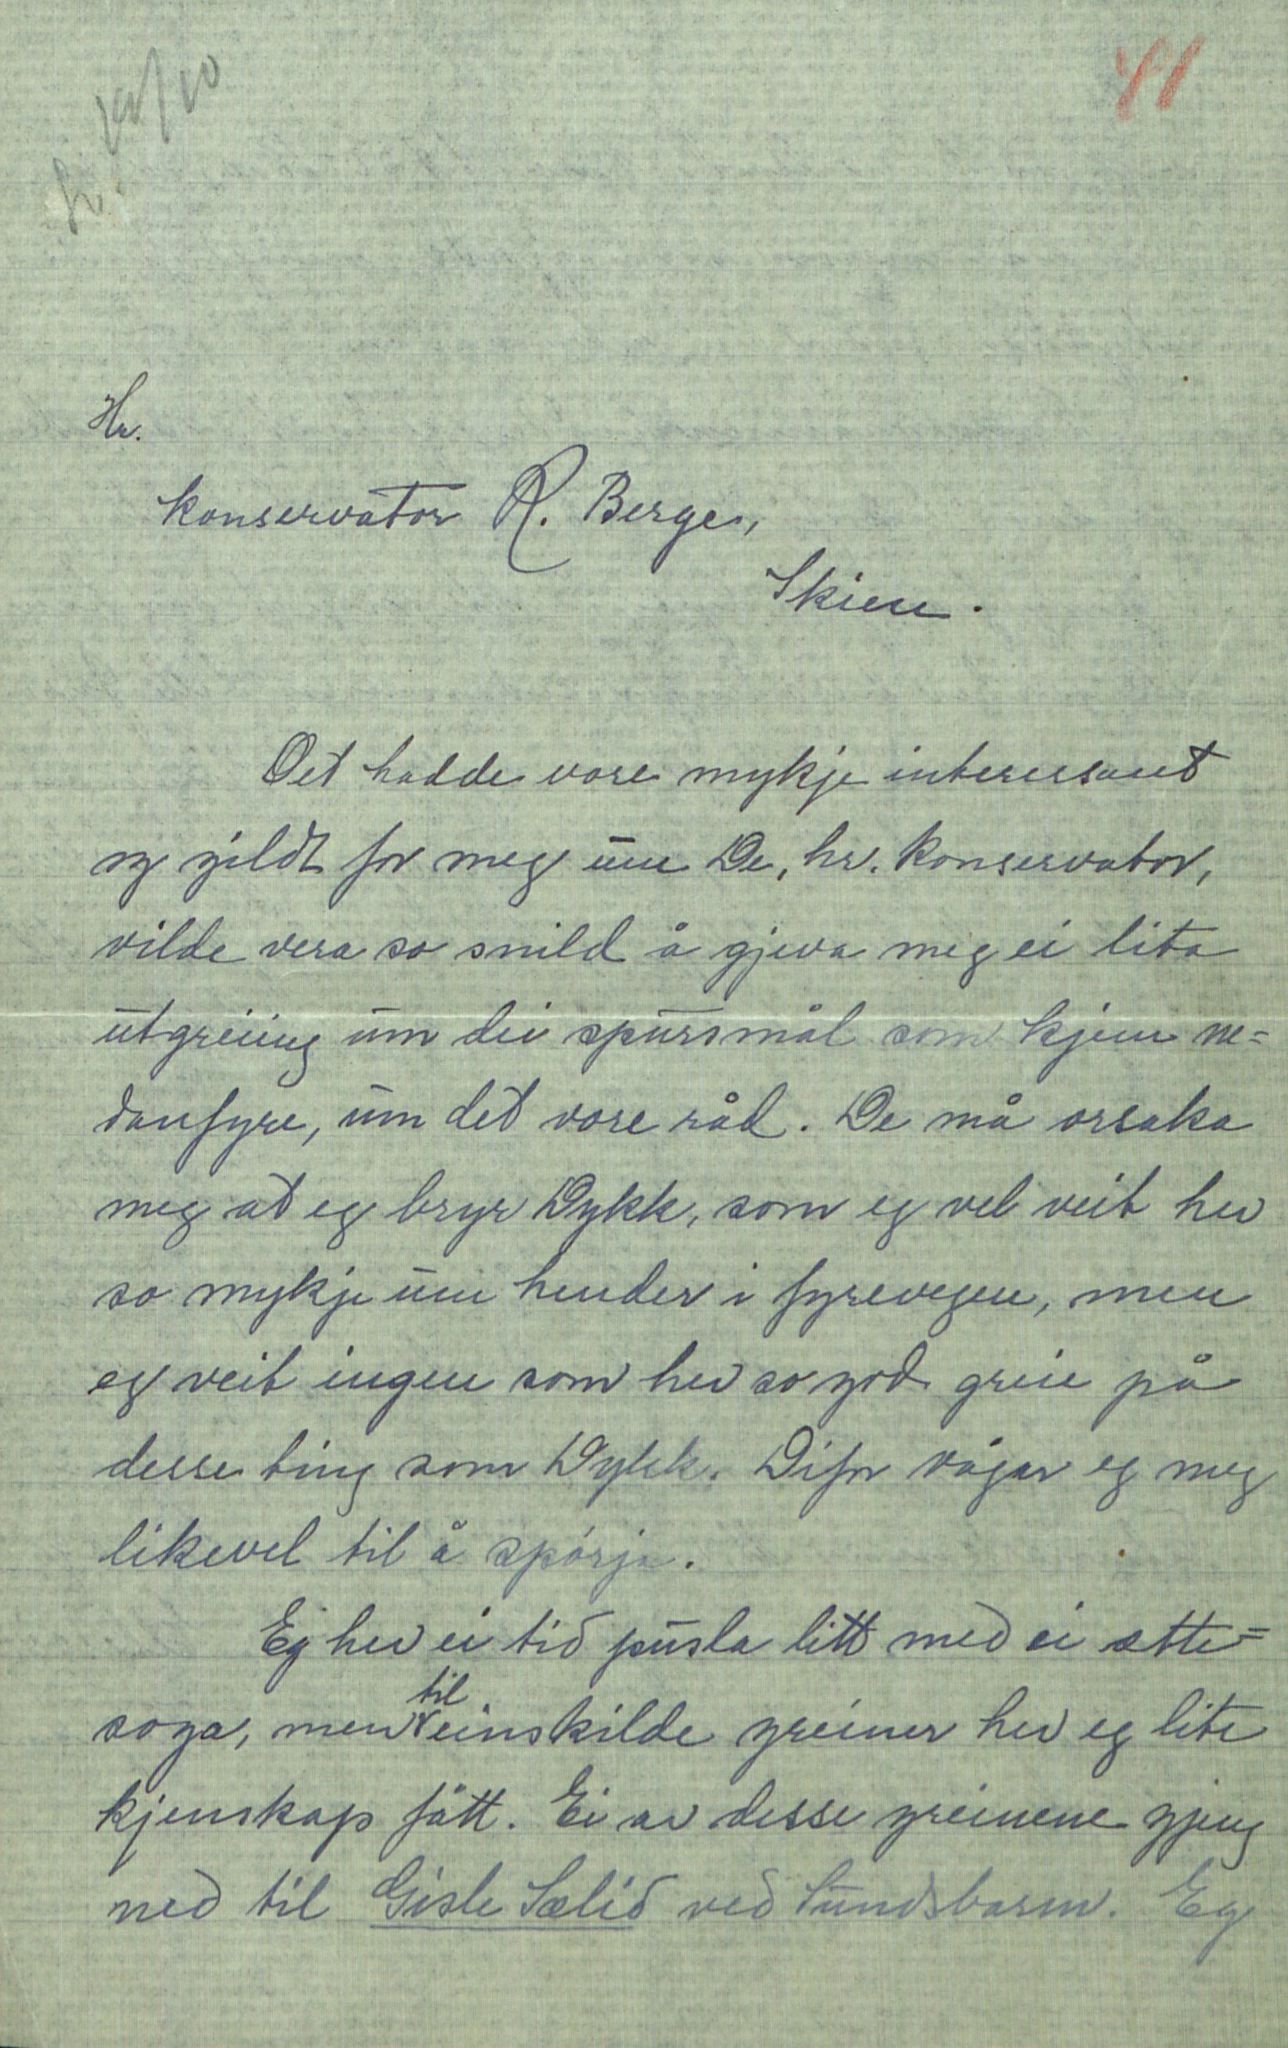 41
Hr.
konservator R. Berge,
Skien.
Det hadde vore mykje interessant
og gildt for meg um De, hr. konservator,
vilde vera so snild å gjeva meg ei lita
utgreiing um dei spursmål som kjem ne-
danfyre, um det vore råd. De må orsaka
meg at eg bryr Dykk, som eg vel veit hev
so mykje um hender i fyrevegen, men
eg veit ingen som hev so god grein på
desse ting som Dykk. Difor vågar eg meg
likevel til å spørja.
Eg hev ei tid pusla litt med ei ætte-
soga, men til einskilde greiner hev eg lite
kjenskap fått. Ei av desse greinene gjeng
ned til Gisle Sælid ved Sundsbarm. Eg